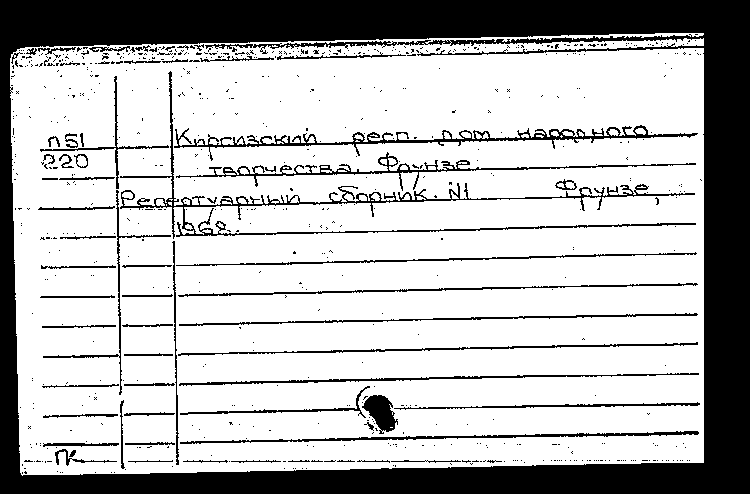 п51 Киргизский респ. дом народного
220 творчества. Фрунзе.
Репертуарный сборник. №1 Фрунзе,
1968.
ПК